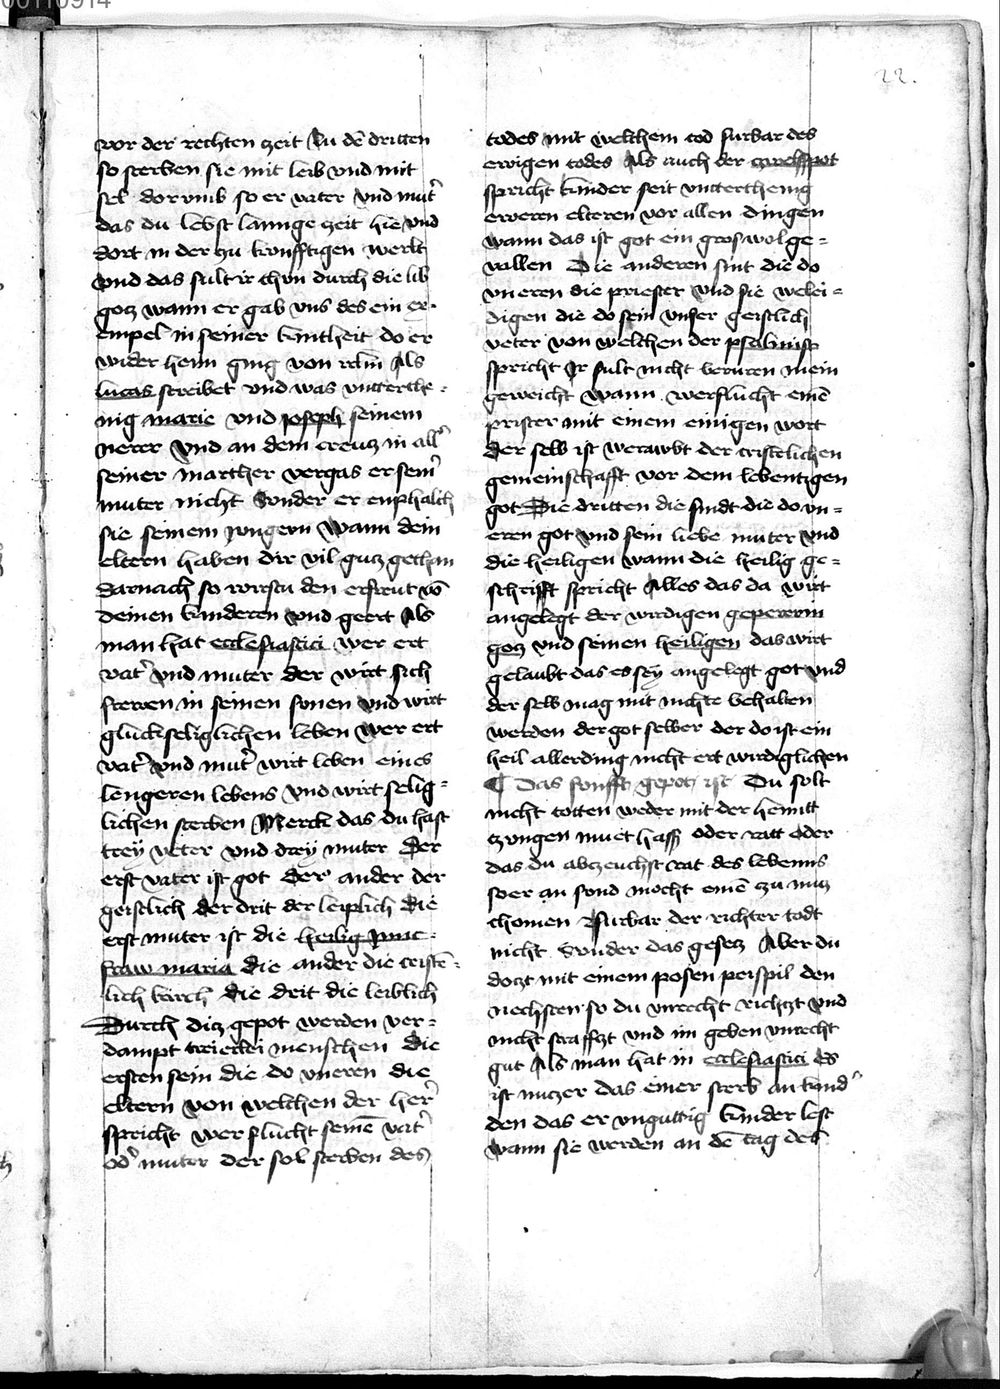 00110914
22.
vor der rechten zeit Zu dē dritten
so sterben sie mit leib vnd mit
sel dorvmb so er vater vnd mut̄
das du lebst lannge zeit hie vnd
dort in der zu kunfftigen werlt
vnd das sult ir thun durch die lib
gotz wann er gab vns des ein ex-
empel in seiner kintheit do er
wider heim ging von irlm̄ Als
lucas screibet vnd was vntterthe-
nig marie vnd joseph seinem
nerer vnd an dem creutz in all̄
seiner marther vergas er sein̄
muter nicht Sonder er enphalch
sie seinem jungern Wann dein
eltern haben dir vil gutz gethan
Darnach so wirstu den erfreut vō
deinen kinderen vnd geert Als
man hat ecclesiastici wer ert
vat̄ vnd muter der wirt sich
frewen in seinen sonen vnd wirt
gluckseliglichen leben wer ert
vat̄ vnd mut̄ wirt leben eines
lengeren lebens vnd wirt selig-
lichen sterben Merck das du hast
trey veter vnd drey muter Der
erst vater ist got Der ander der
geistlich der drit der leiplich Die
erst muter ist die heilig junc-
fraw maria die ander die cristē-
lich kirch die drit die leiblich
Durch ditz gepot werden ver-
dampt treierlei menschen die
ersten sein die do vneren die
eltern von welchen der her̄
spricht wer flucht seinē vat̄
od̄ muter der sol sterben des
todes mit welchem tod furbar des
ewigen todes Als auch der
spricht kinder seit vnttertheinig
eweren elteren vor allen dingen
wann das ist got ein gros wolge-
vallen Die anderen sint die do
vneren die priester vnd sie welei-
digen die do sein vnser geistlich
veter von welchen der psalmist
spricht Ir sult nicht beruren mein
geweicht Wann werflucht einē
prister mit einem einigen wort
der selb ist werawbt der cristelichen
gemeinschafft vor dem lebentigen
got Die dritten die sindt die do vn-
eren got vnd sein liebe muter vnd
die heiligen wann die heilig ge-
schrifft spricht Alles das da wirt
angelegt der wirdigen gepererin
gotz vnd seinen heiligen das wirt
gelaubt das es sey angelegt got vnd
der selb mag mit nichte behalten
werden der got selber der do ist ein
heil allerding nicht ert wirdiglichen
¶ Das funfft gepotz ist Du solt
nicht totten weder mit der hennt
zungen muet hass oder ratt oder
das du abzeuchst rat des lebenns
so er an sond mocht einē zu nutz
chomen Furbar der richter todt
nicht Sonder das gesetz Aber du
dotzt mit einem posen peispil den
nechsten so du vnrecht richtzt vnd
nicht straffzt vnd im geben vnrecht
gut Als man hat in ecclesiastici Es
ist nutzer das einer sterb an kind̄
den das er vnguttig kinder lest
wann sie werden an dē tag des